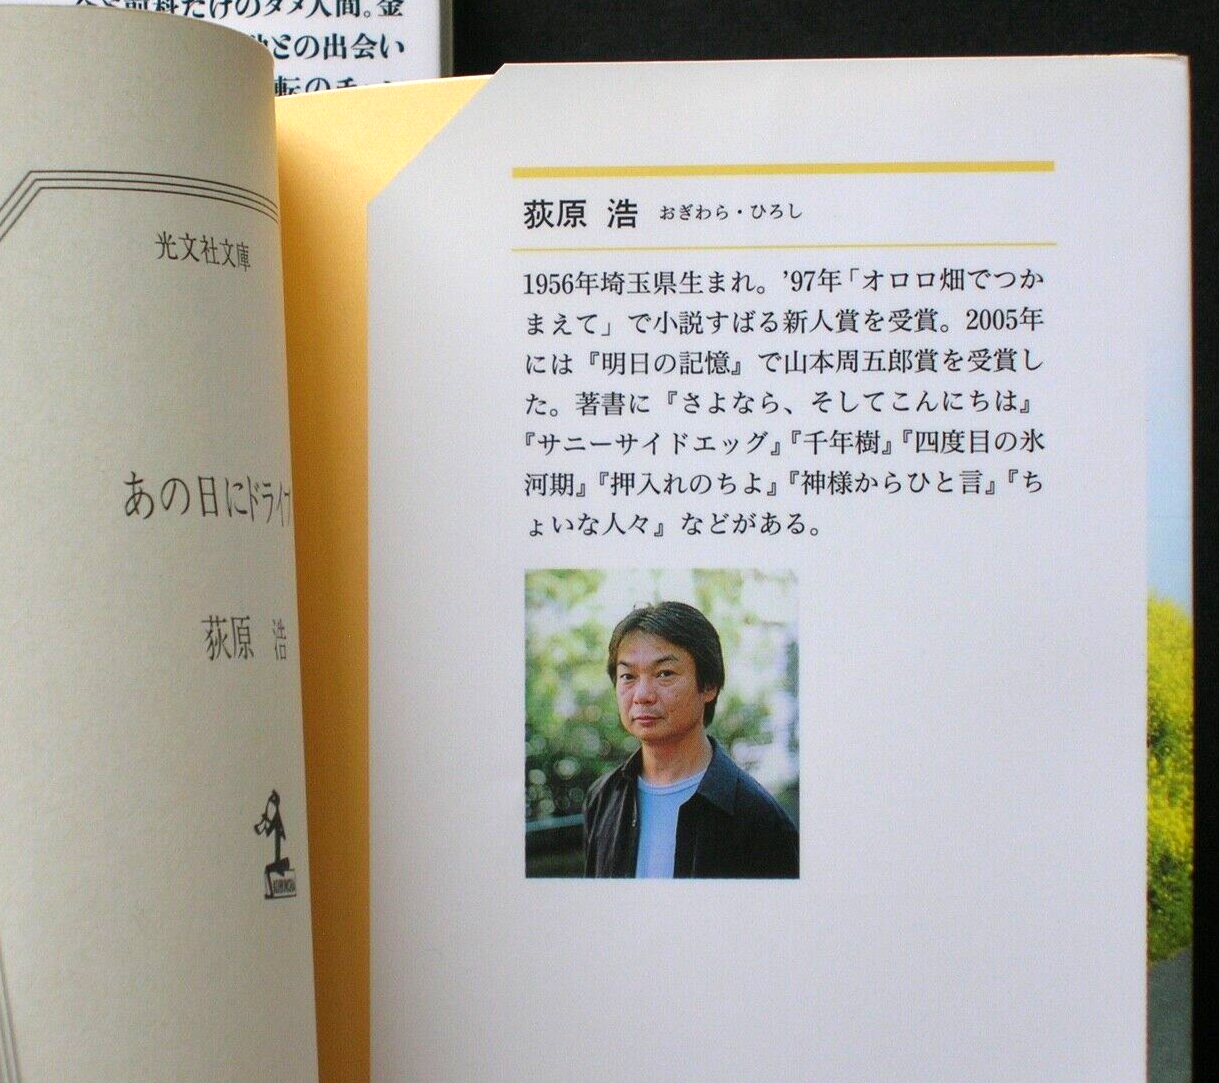 前科だけのダメ人間。金
との出会い
光文社文庫
あの日にドライブ
荻原 浩
荻原 浩 おぎわら・ひろし
1956年埼玉県生まれ。’97年「オロロ畑でつか
まえて」で小説すばる新人賞を受賞。2005年
には『明日の記憶』で山本周五郎賞を受賞し
た。著書に『さよなら、そしてこんにちは』
『サニーサイドエッグ』『千年樹』『四度目の氷
河期』『押入れのちよ』『神様からひと言』『ち
ょいな人々』などがある。